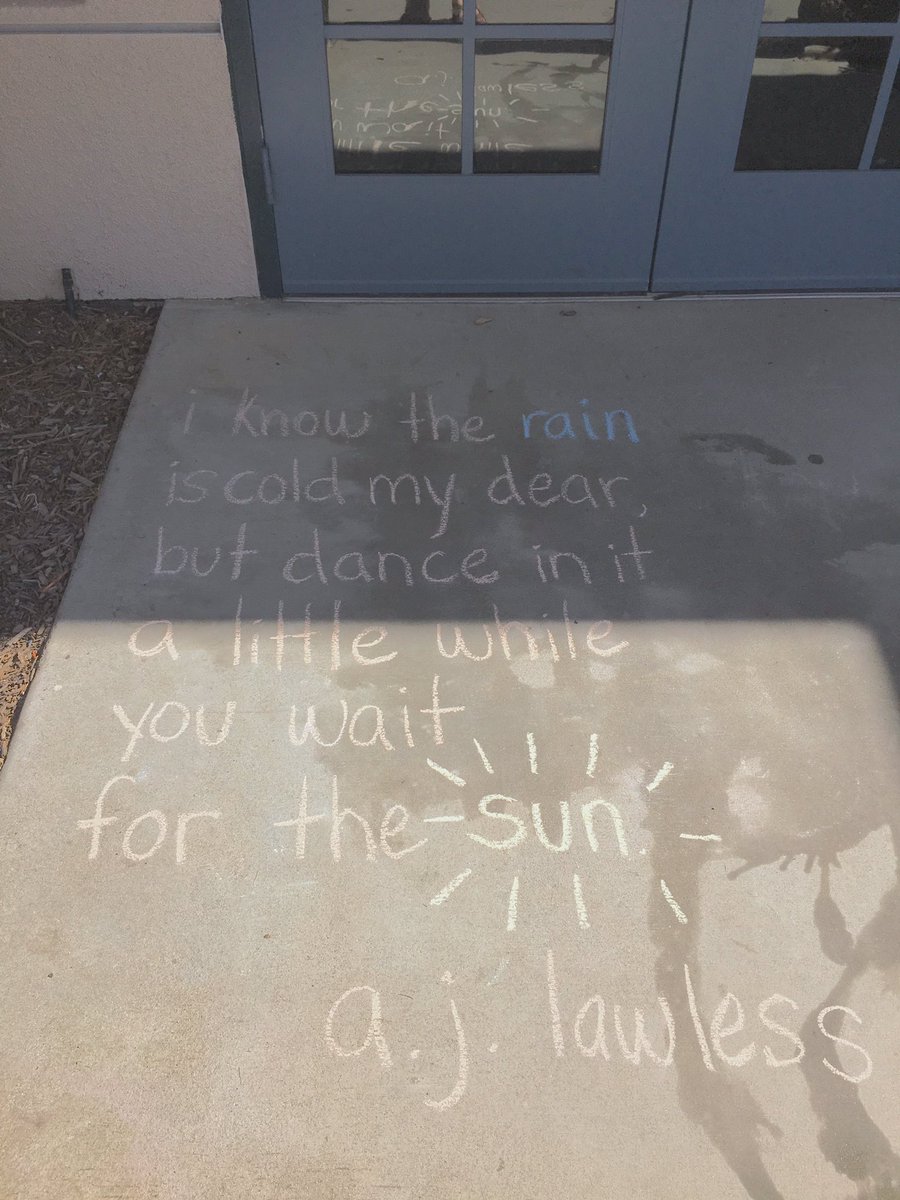 i know the rain
is cold my dear,
but dance in it
a little while
you wait
for the sun.
a.j. lawless